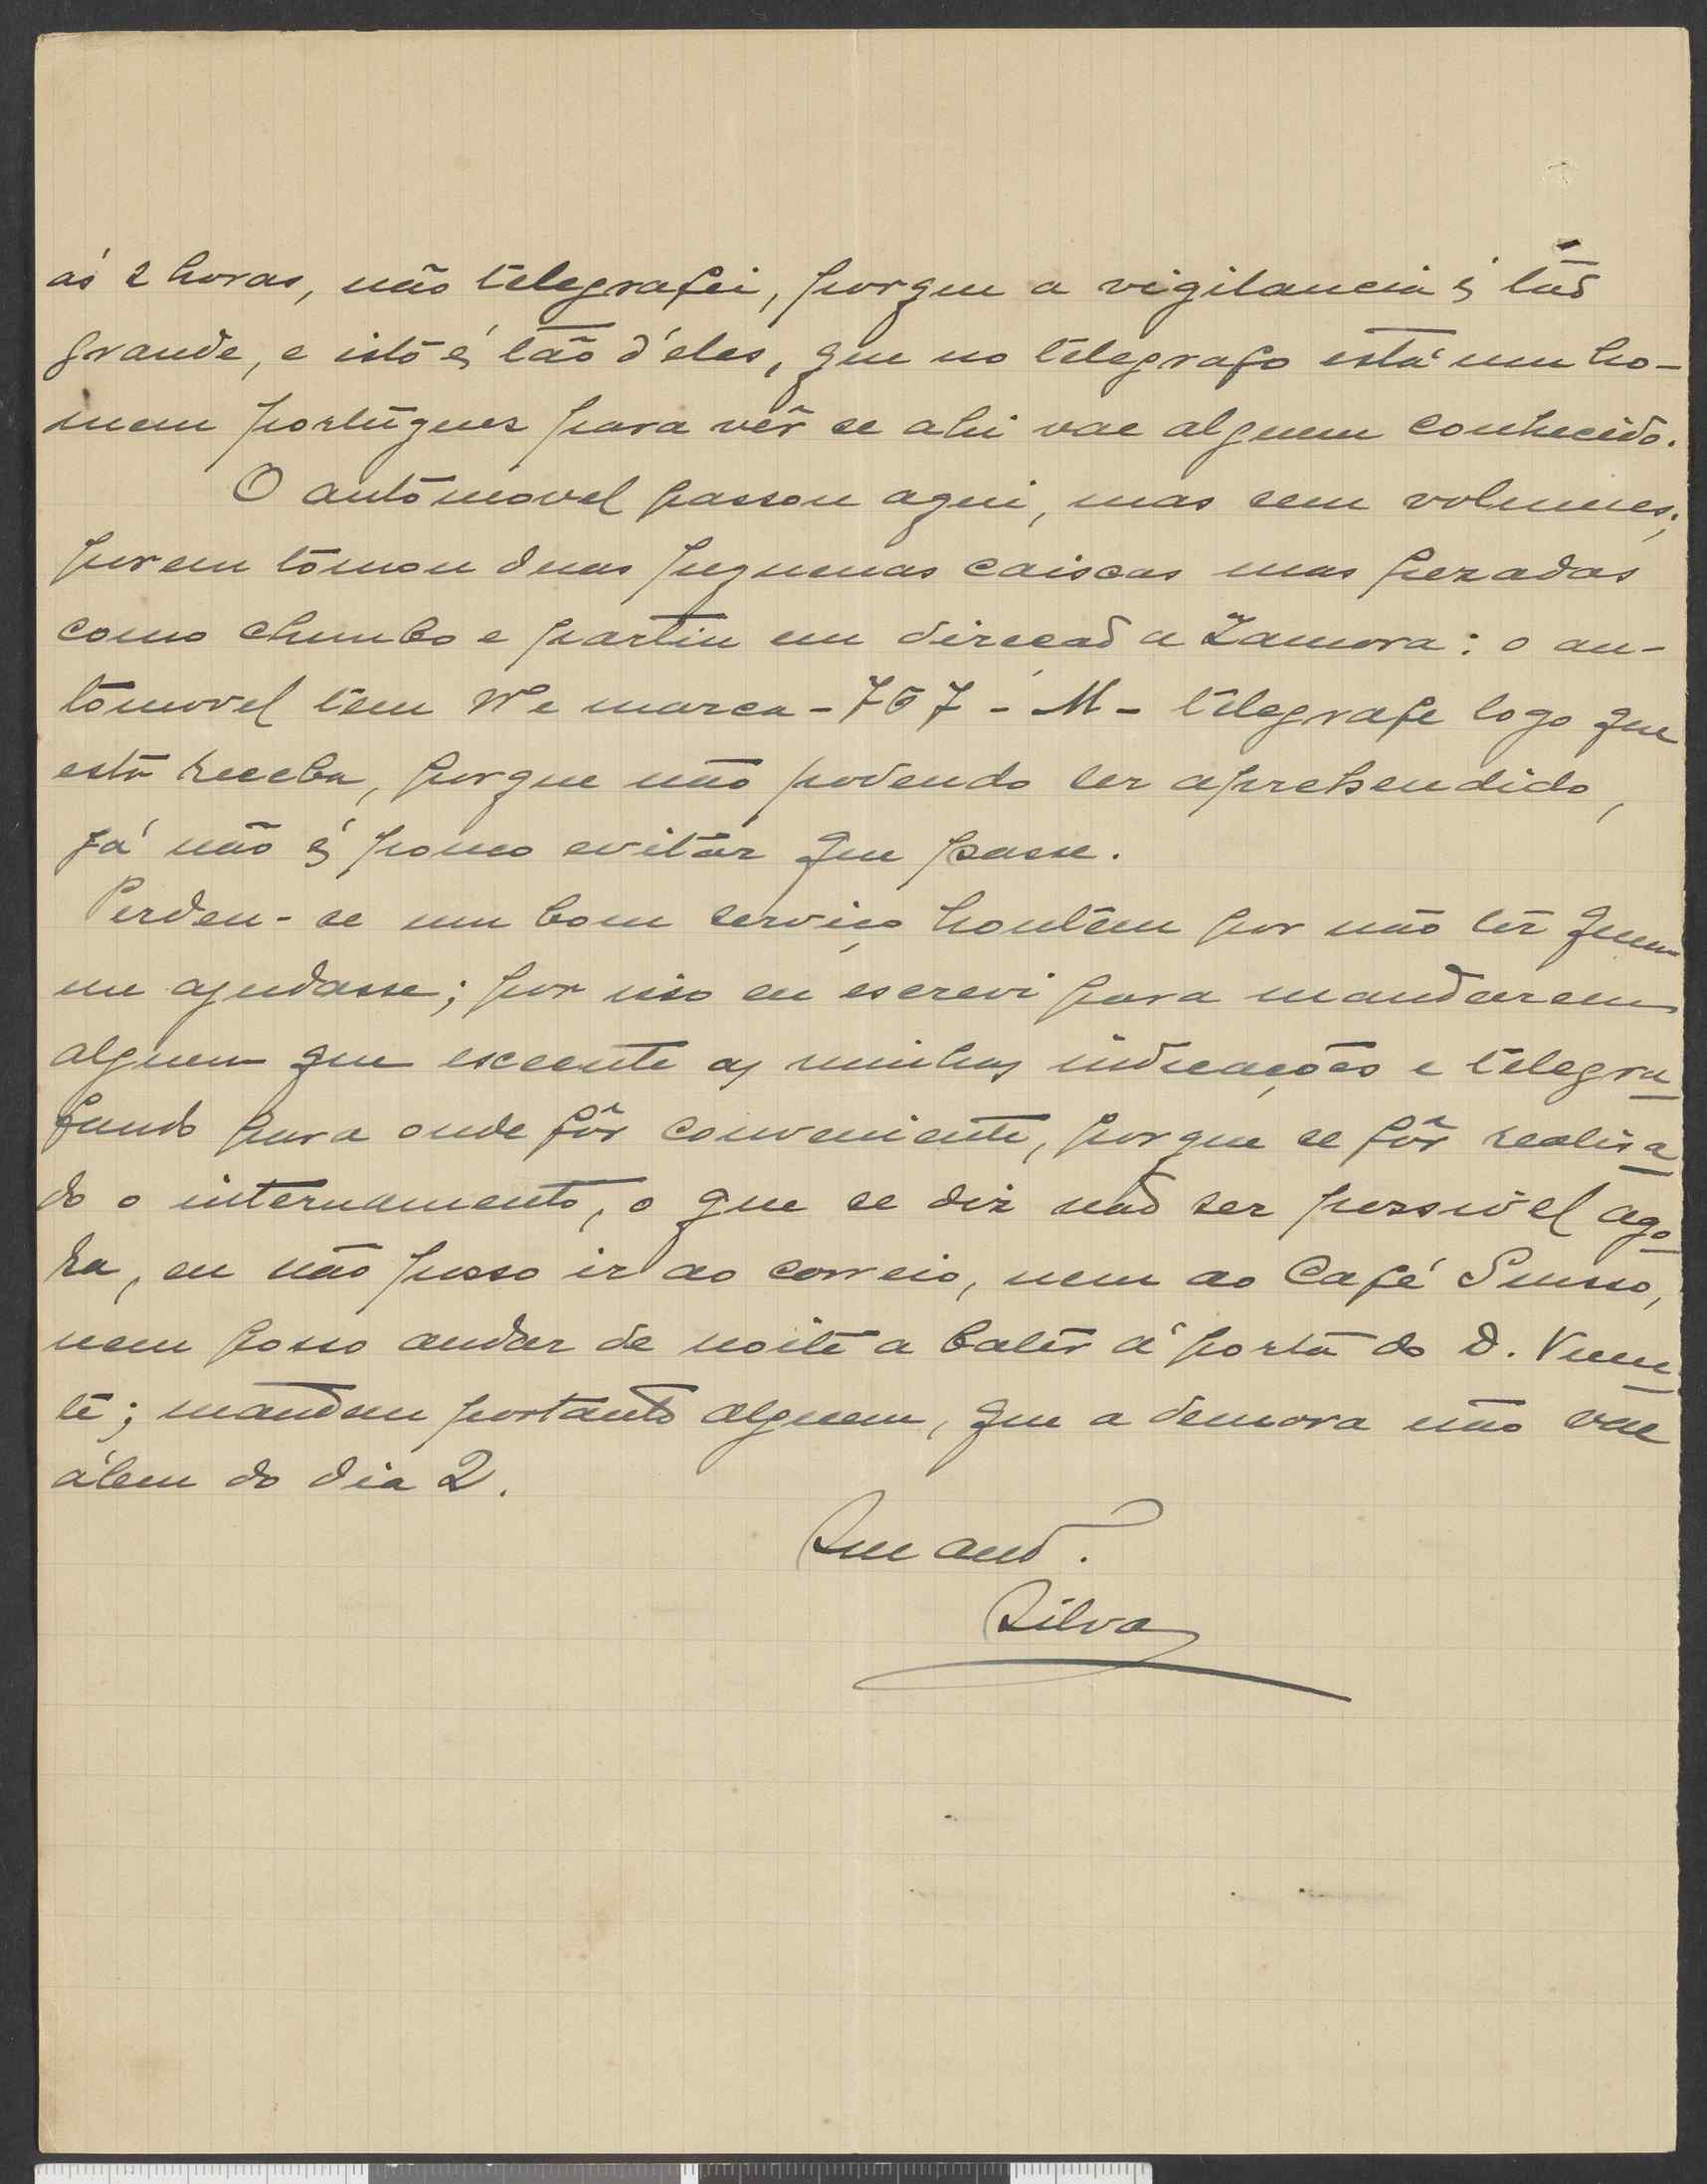 ás 2 horas, não telegrafei, porque a vigilancia é tão
grande, e isto é tão d'eles, que no telegrafo está um ho-
mem portuguez para vêr se ahi vae alguem conhecido.
O automovel passou aqui, mas sem volumes;
porem tomou duas pequenas caiscas mas pezadas
como chumbo e partiu em direcão a Zamora: o au-
tomovel tem Nº e marca - 707 - M - telegrafe logo que
esta receba, porque não podendo ser aprehendido,
já não é pouco evitar que passe.
Perdeu-se um bom serviço hontem por não ter quem
me ajudasse; por isso eu escrevi para mandarem
alguem que escecute as minhas indicações e telegra-
fando para onde fôr conveniente, porque se fôr realisa-
do o internamento, o que se diz não ser possivel ago-
ra, eu não posso ir ao correio, nem ao Café Suisso,
nem posso andar de noite a bater á porta do D.
te; mandem portanto alguem, que a demora não vae
álem do dia 2.
Silva